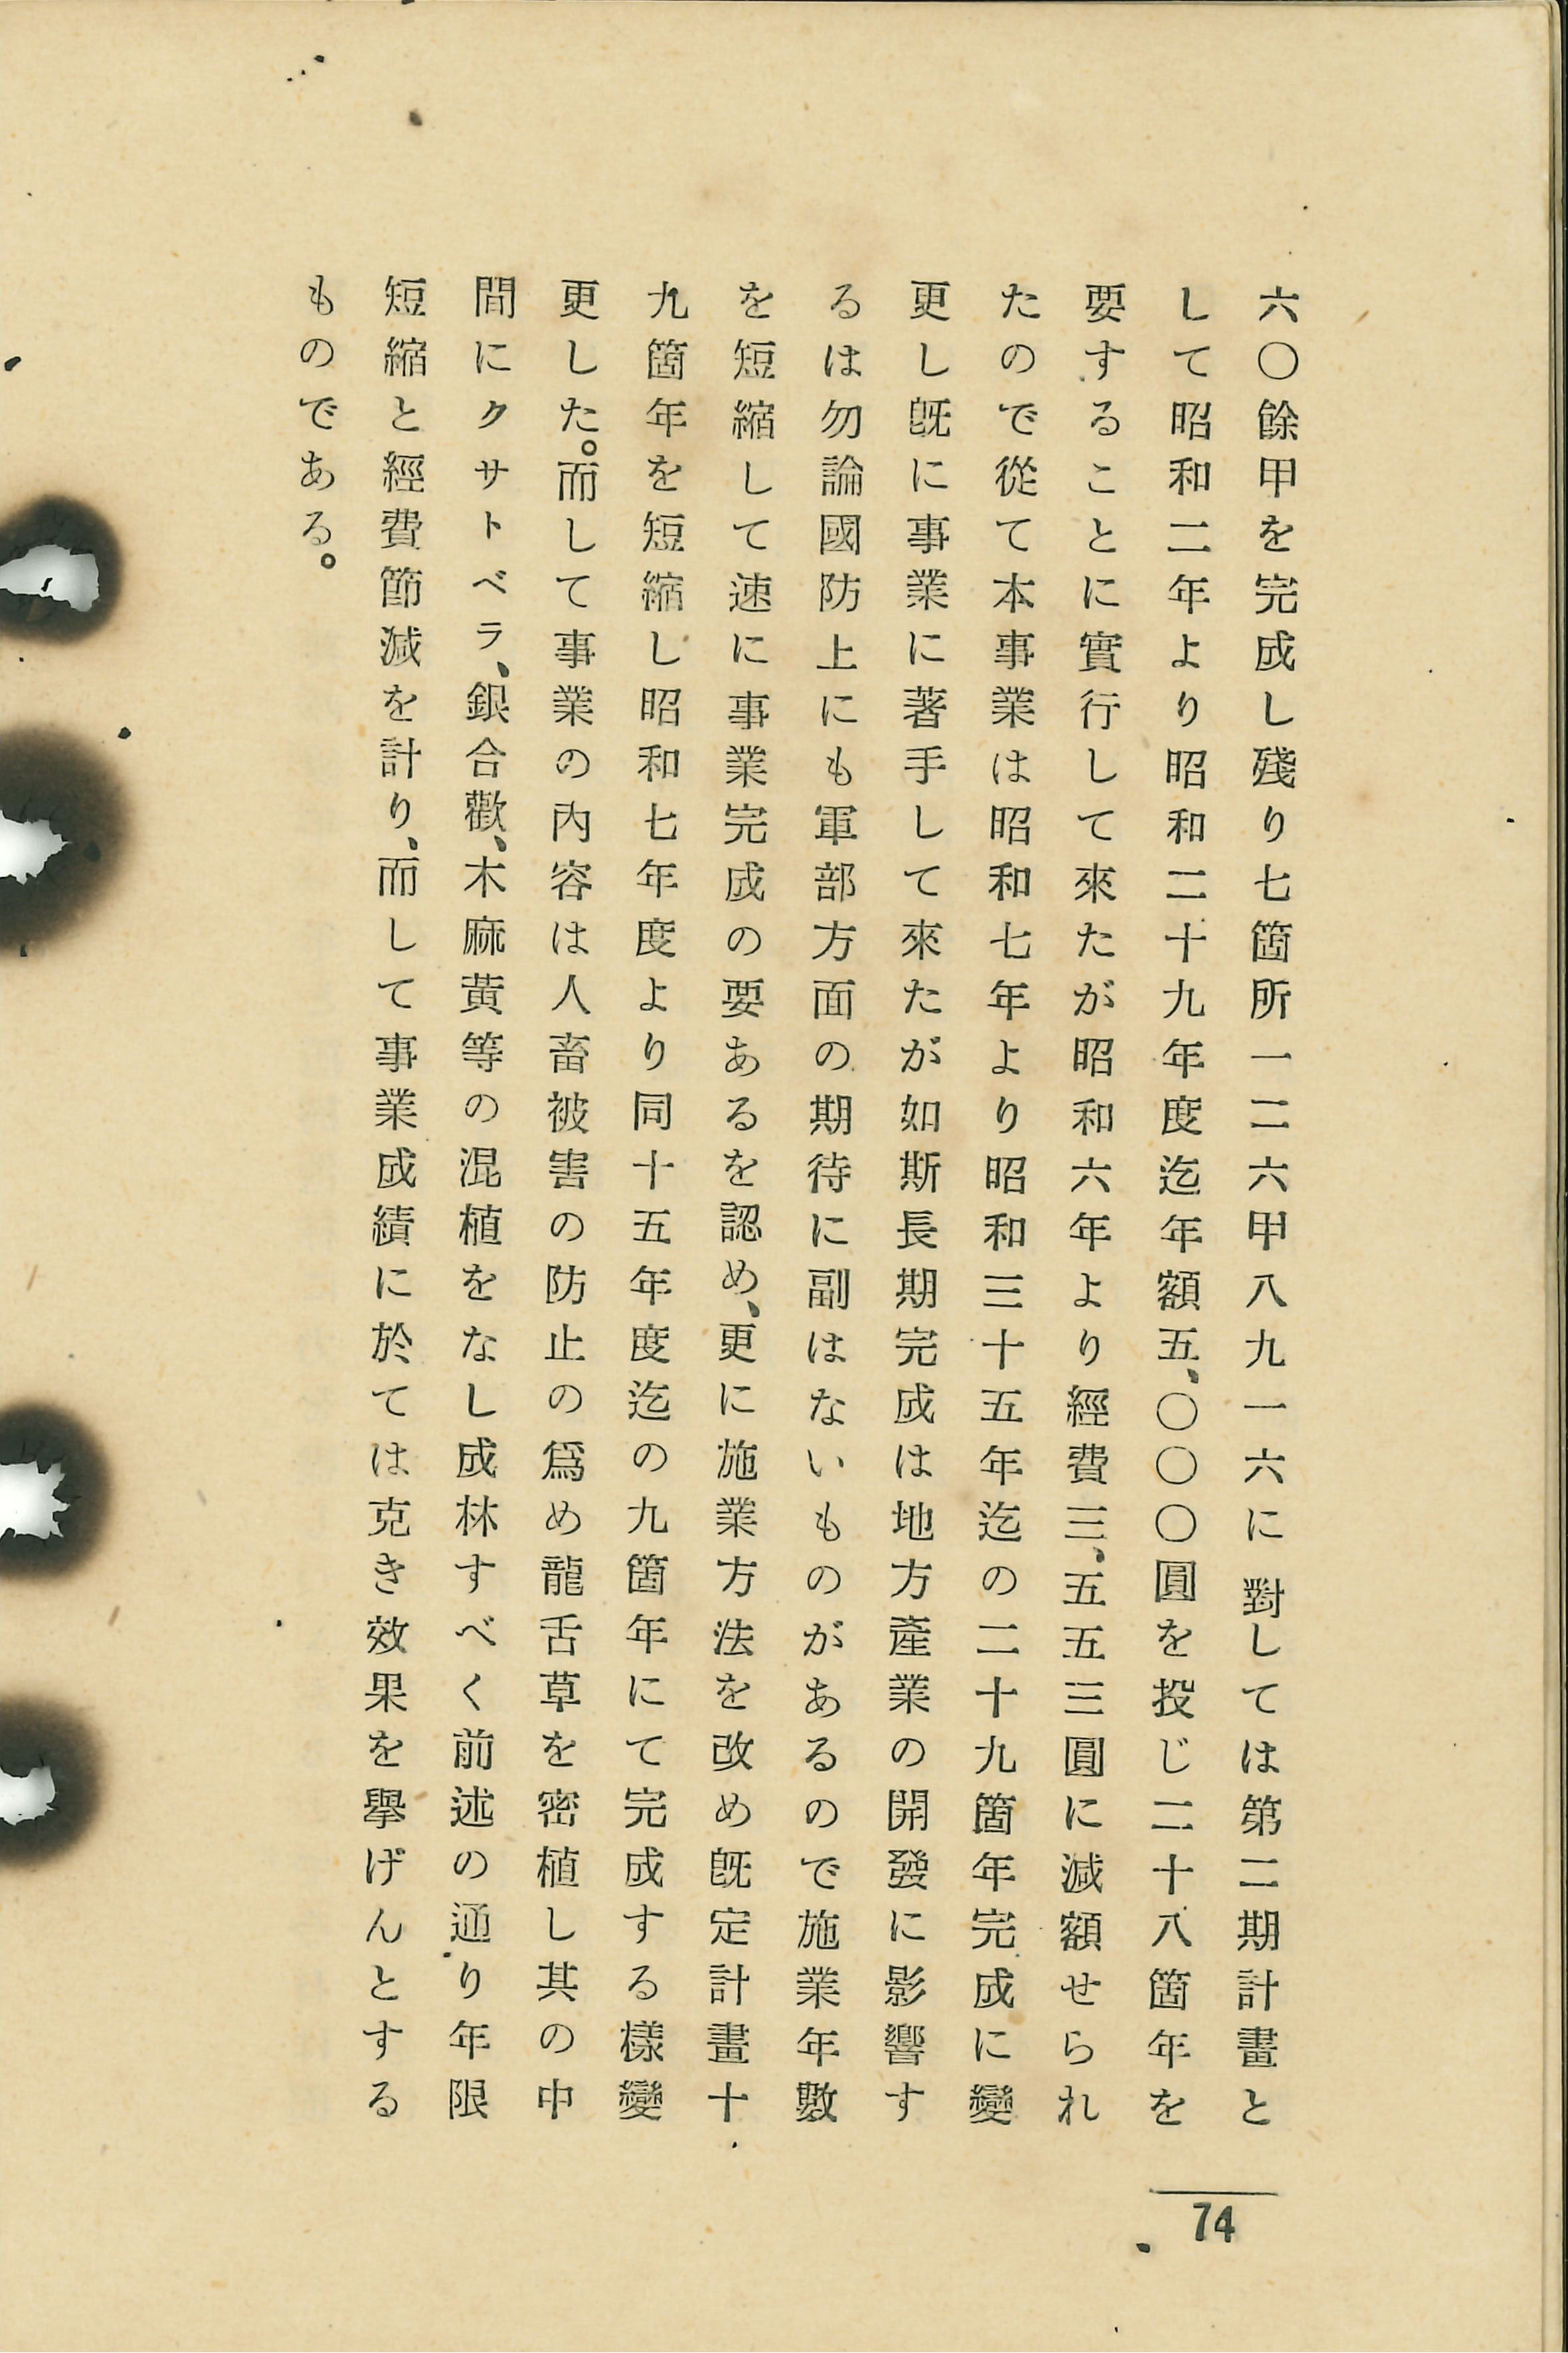 六〇餘甲を完成し殘り七箇所一二六甲八九一六に對しては第二期計畫と
して昭和二年より昭和二十九年度迄年額五、〇〇〇圓を投じ二十八箇年を
要することに實行して來たが昭和六年より經費三、五五三圓に減額せられ
たので從て本事業は昭和七年より昭和三十五年迄の二十九箇年完成に變
更し旣に事業に著手して來たが如斯長期完成は地方產業の開發に影響す
るは勿論國防上にも軍部方面の期待に副はないものがあるので施業年數
を短縮して速に事業完成の要あるを認め、更に施業方法を改め旣定計畫十
九箇年を短縮し昭和七年度より同十五年度迄の九箇年にて完成する樣變
更した。而して事業の內容は人畜被害の防止の爲め龍舌草を密植し其の中
間にクサトベラ、銀合歡、木麻黃等の混植をなし成林すべく前述の通り年限
短縮と經費節減を計り、而して事業成績に於ては克き效果を擧げんとする
ものである。
74